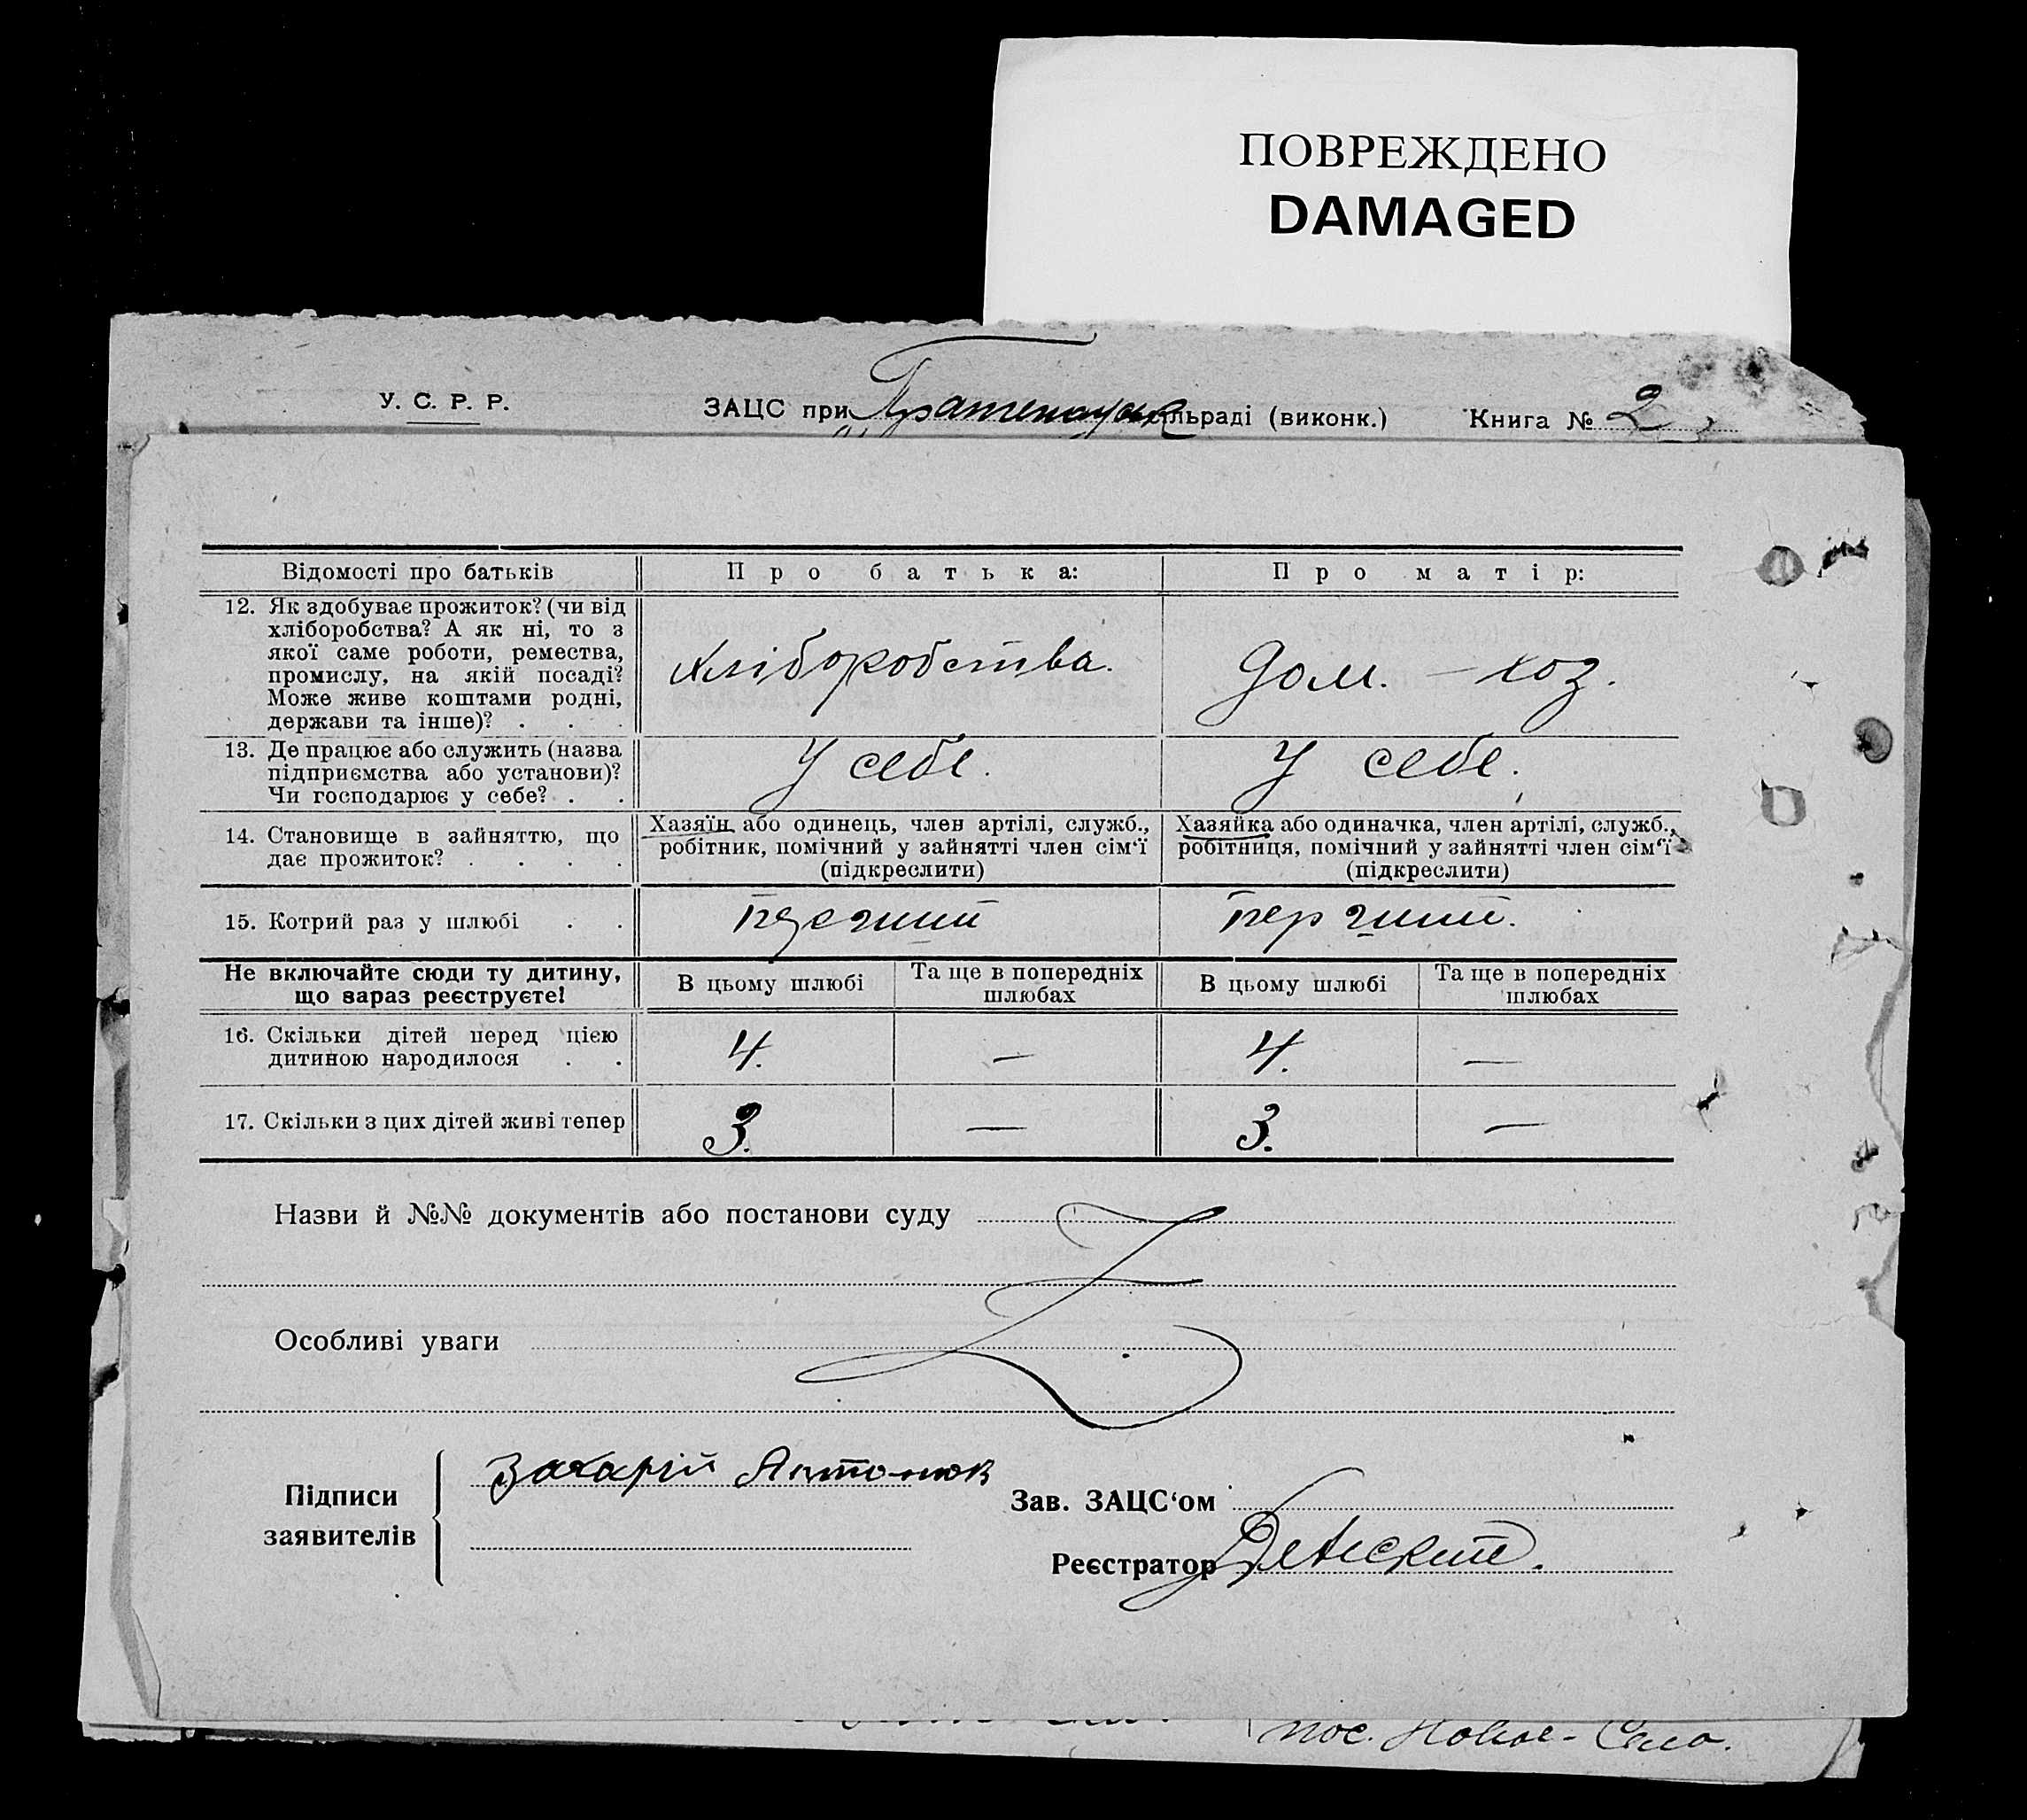 ПОВРЕЖДЕНО
DAMAGED
У. С. Р. Р.
ЗАЦС при сільраді (виконк.)
Книга № 2
Відомості про батьків
Про батька:
Про матір:
12. Як здобуває прожиток? (чи від
хліборобства? А як ні, то з
якої саме роботи, ремества,
промислу, на якій посаді?
Може живе коштами родні,
держави та інше)? . . .
Хліборобства.
Дом. – хоз.
13. Де працює або служить (назва
підприємства або установи)?
Чи господарює у себе? . .
У себе.
У себе.
14. Становище в зайняттю, що
дає прожиток? . . . .
Хазяїн або одинець, член артілі, служб.,
робітник, помічний у зайнятті член сім‘ї
(підкреслити)
Хазяйка або одиначка, член артілі, служб.,
робітниця, помічний у зайнятті член сім‘ї
(підкреслити)
15. Котрий раз у шлюбі . .
Не включайте сюди ту дитину,
що зараз реєструєте!
В цьому шлюбі
Та ще в попередніх
шлюбах
В цьому шлюбі
Та ще в попередніх
шлюбах
16. Скільки дітей перед цією
дитиною народилося . .
4. — 4. —
17. Скільки з цих дітей живі тепер
3. — 3. —
Назви й №№ документів або постанови суду
Особливі уваги
Підписи
заявителів
Захарій Антонюк
Зав. ЗАЦС‘ом
Реєстратор
пос. Новое-Село.